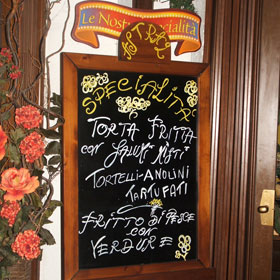 Le Nostre Specialità
ASTRAL
SPECIALITA'
TORTA FRITTA
CON SALUMI MISTI
TORTELLI-ANOLINI
TARTUFATI
FRITTO DI PESCE
CON
VERDURE